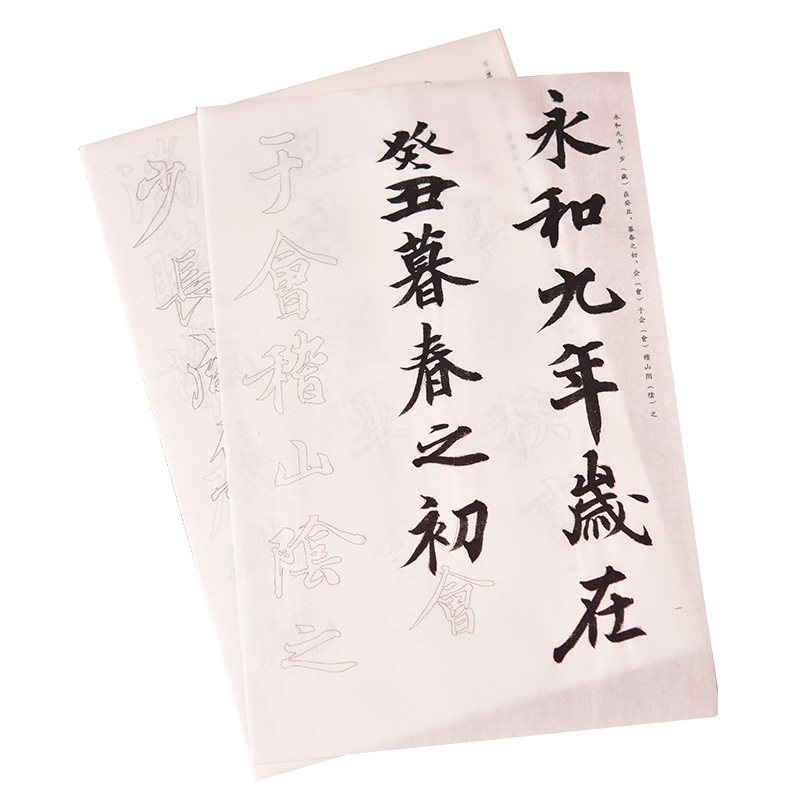 永和九年，岁（歲）在癸丑，暮春之初，会（會）于会（會）稽山阴（陰）之
永和九年歲在
癸丑暮春之初會
于會稽山陰之